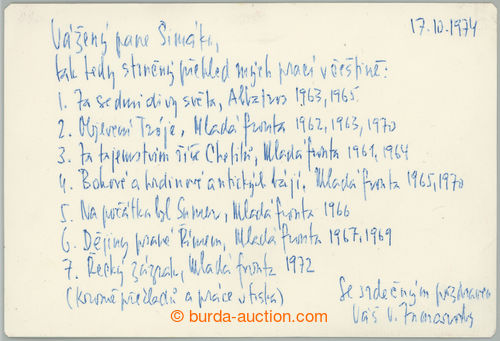 17.10.1974
Vážený pane Šimáku,
tak tedy stručný přehled mých prací v češtině:
1. Za sedmi divy světa, Albatros 1963, 1965
2. Objevení Tróje, Mladá fronta 1962, 1963, 1970
3. Za tajemstvím říše Chetitů, Mladá fronta 1961, 1964
4. Bohové a hrdinové antických bájí, Mladá fronta 1965, 1970
5. Na počátku byl Sumer, Mladá fronta 1966
6. Dějiny psané Římem, Mladá fronta 1967, 1969
7. Řecký zázrak, Mladá fronta 1972
(kromě překladů a práce v tisku)
Se srdečným pozdravem
Váš V. Zamarovský
© burda-auction.com